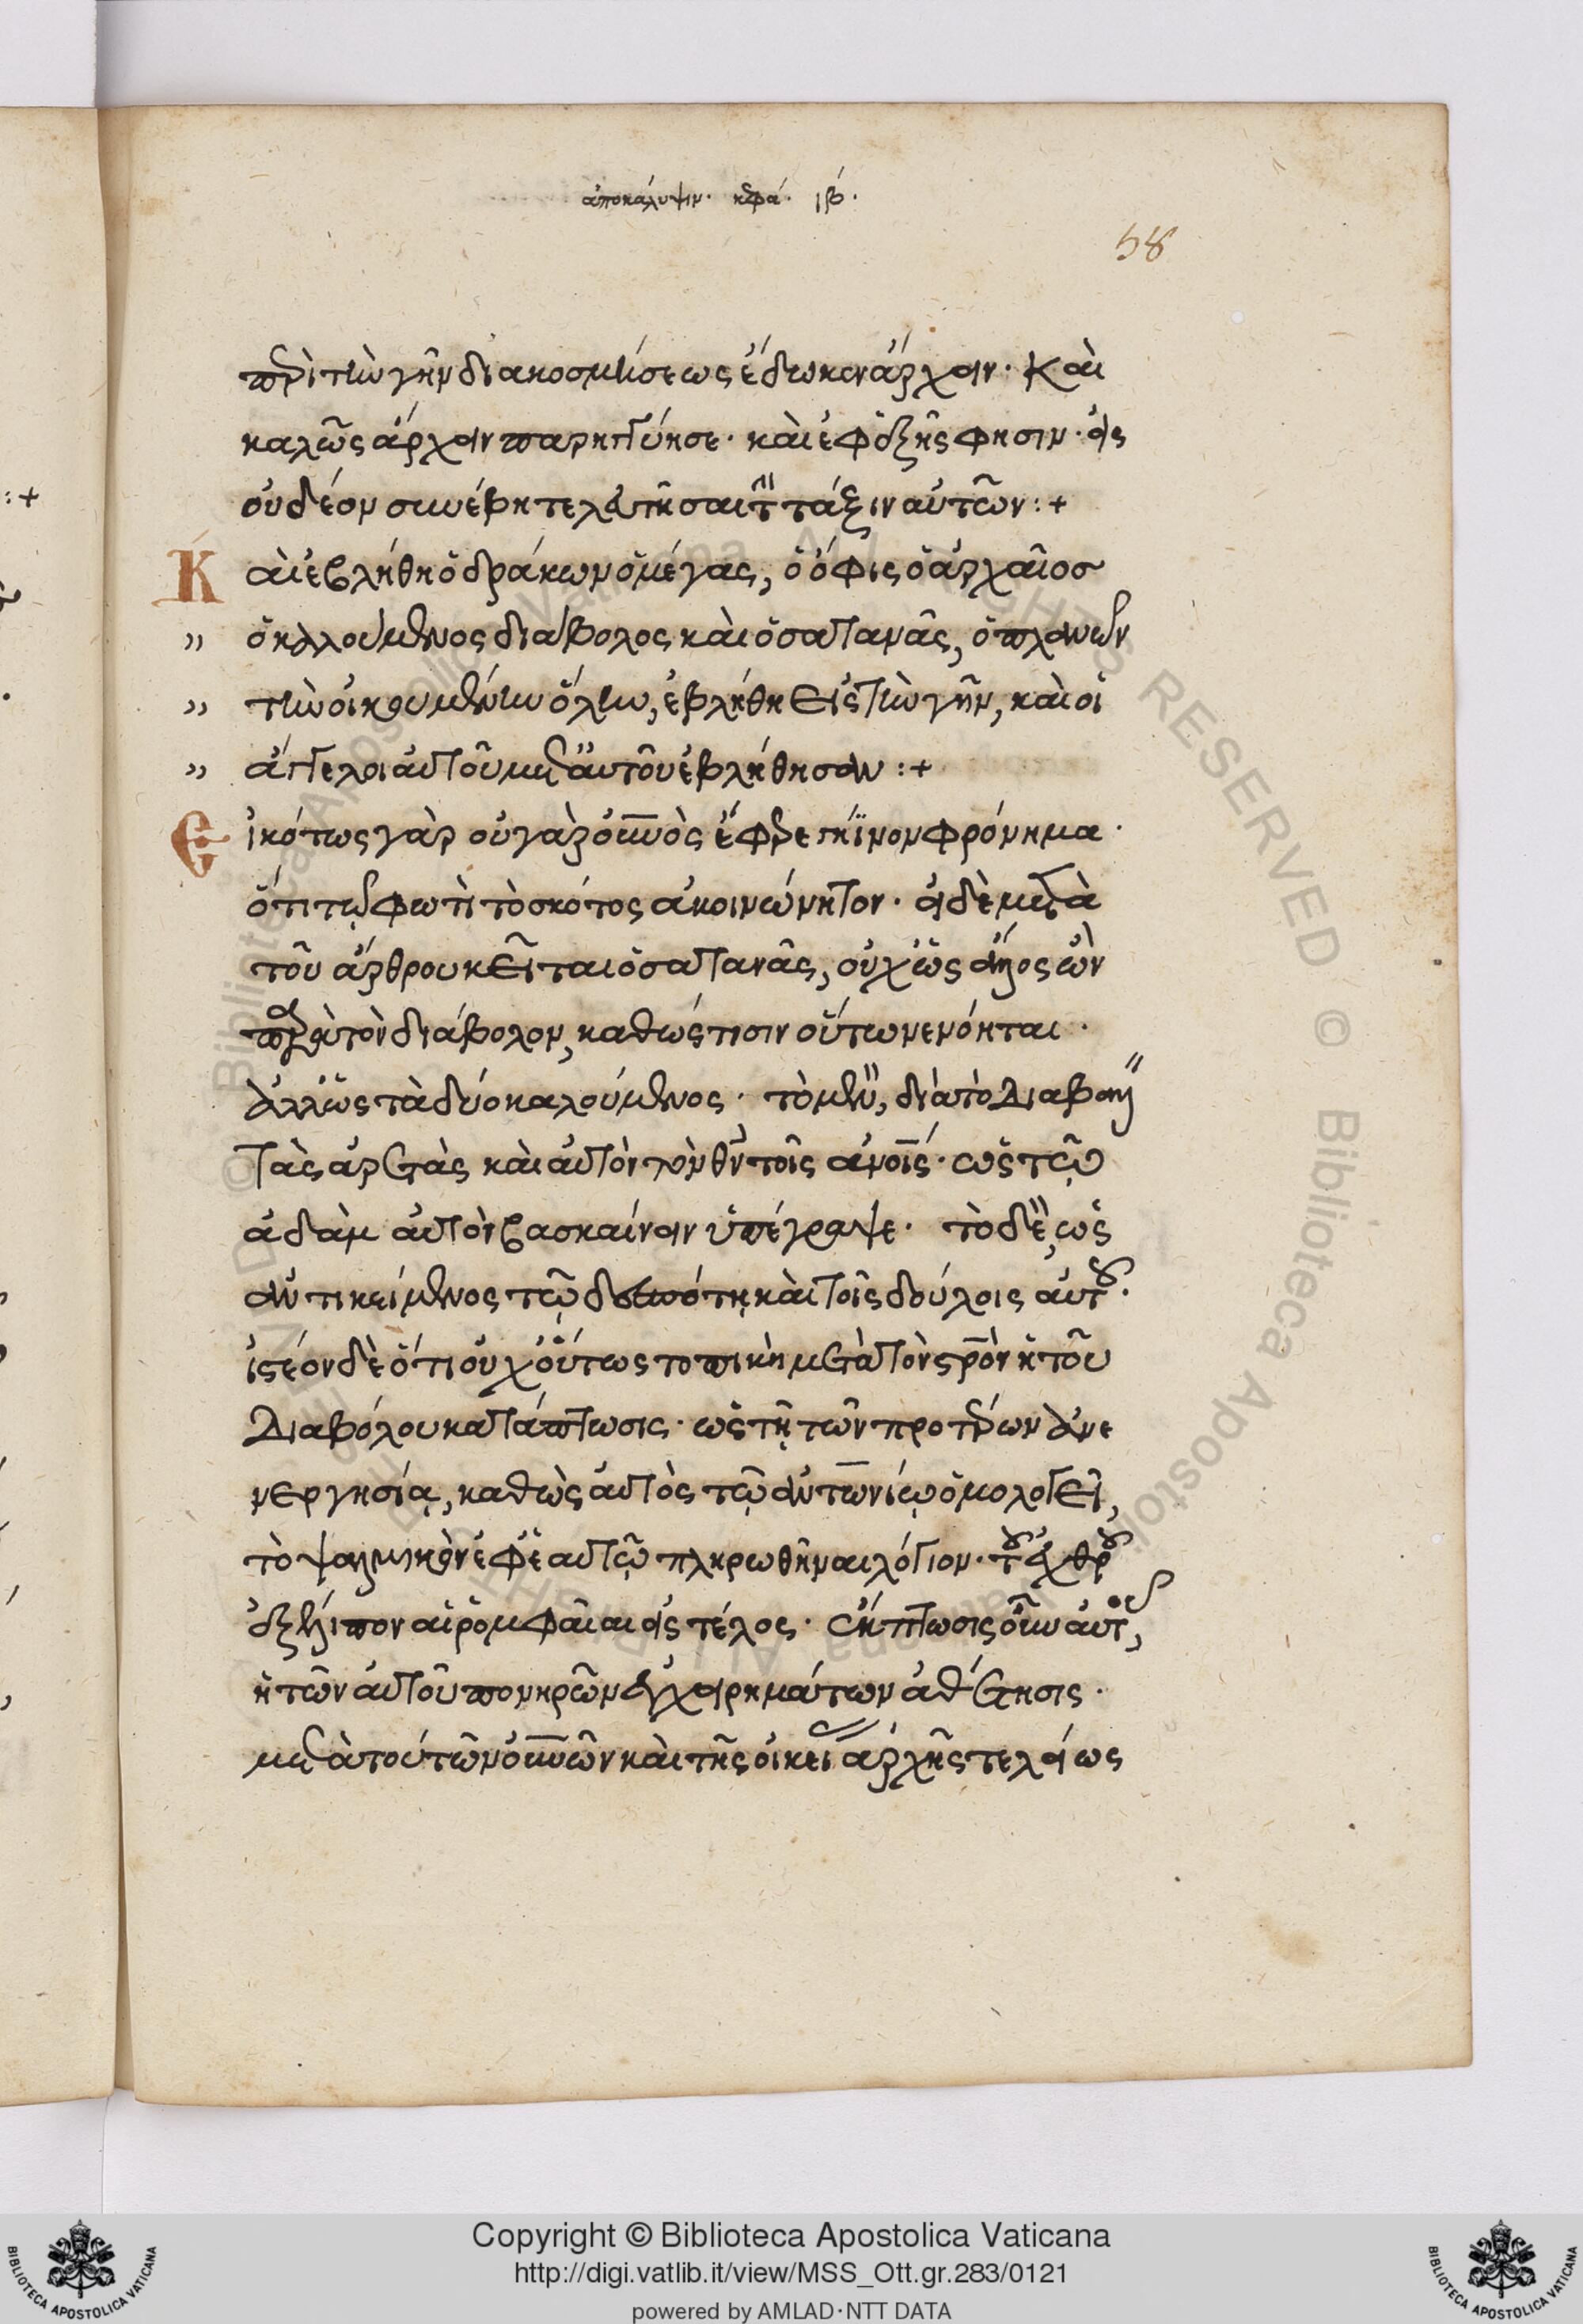 ἀποκάλυψιν. κεφά. ιβ´.
58
περὶ τὴν γῆν διακοσμήσεως ἔδωκεν ἄρχειν. Καὶ
καλῶς ἄρχειν παρηγγύησε. καὶ ἐφ ἑξῆς φησιν. εἰς
οὐδέον συνέβη τελευτῆσαι τὴν τάξιν αὐτῶν :+
Καὶ ἐβλήθη ὁ δράκων ὁ μέγας, ὁ ὄφις ὁ ἀρχαῖοσ
" ὁ καλούμενος διάβολος καὶ ὁ σατανᾶς, ὁ πλανῶν
" τὴν οἰκουμένην ὅλην, ἐβλήθη εἰς τὴν γῆν, καὶ οἱ
" ἄγγελοι αὐτοῦ μετ αὐτοῦ ἐβλήθησαν :+
Εἰκότως γὰρ οὐ γὰρ ὁ οὐνὸς ἔφερε γήϊνον φρόνημα.
ὅτι τῷ φωτὶ τὸ σκότος ἀκοινώνητον. εἰ δὲ μετὰ
τοῦ ἄρθρου κεῖται ὁ σατανᾶς, οὐχ ὡς ἄλλος ὢν
παρὰ τὸν διάβολον, καθώς τισιν οὕτω νενόηται.
ἀλλ ὡς τὰ δύο καλούμενος. τὸ μὲν, διὰ τὸ διαβάλλειν
τὰς ἀρετὰς καὶ αὐτὸν τὸν θν τοῖς ἀνοις. ὡς τῷ
ἀδὰμ αὐτὸν βασκαίνειν ὑπέγραψε. τὸ δὲ, ὡς
ἀντικείμενος τῷ δεσπότῃ καὶ τοῖς δούλοις αὐτοῦ.
ἰστέον δὲ ὅτι οὐχ οὕτως τοπικὴ μετὰ τὸν στρὸν ἡ τοῦ
Διαβόλου κατάπτωσις. ὡς τῇ τῶν προτέρων ἀνε
νεργησίᾳ, καθὼς αὐτὸς τῷ ἀντωνίῳ ὁμολογεῖ,
τὸ ψαλμικὸν ἐφ ἑαυτῷ πληρωθῆναι λόγιον. τοῦ ἐχθροῦ
ἐξέλιπον αἱ ῥομφαῖαι εἰς τέλος. ἡ πτῶσις οὖν αὐτοῦ,
ἡ τῶν αὐτοῦ πονηρῶν ἐγχειρημάτων ἀθέτησις.
μετὰ τούτων οὐνῶν καὶ τῆς οἰκείας ἀρχῆς τελείως
Copyright © Biblioteca Apostolica Vaticana
http://digi.vatlib.it/view/MSS_Ott.gr.283/0121
powered by AMLAD·NTT DATA